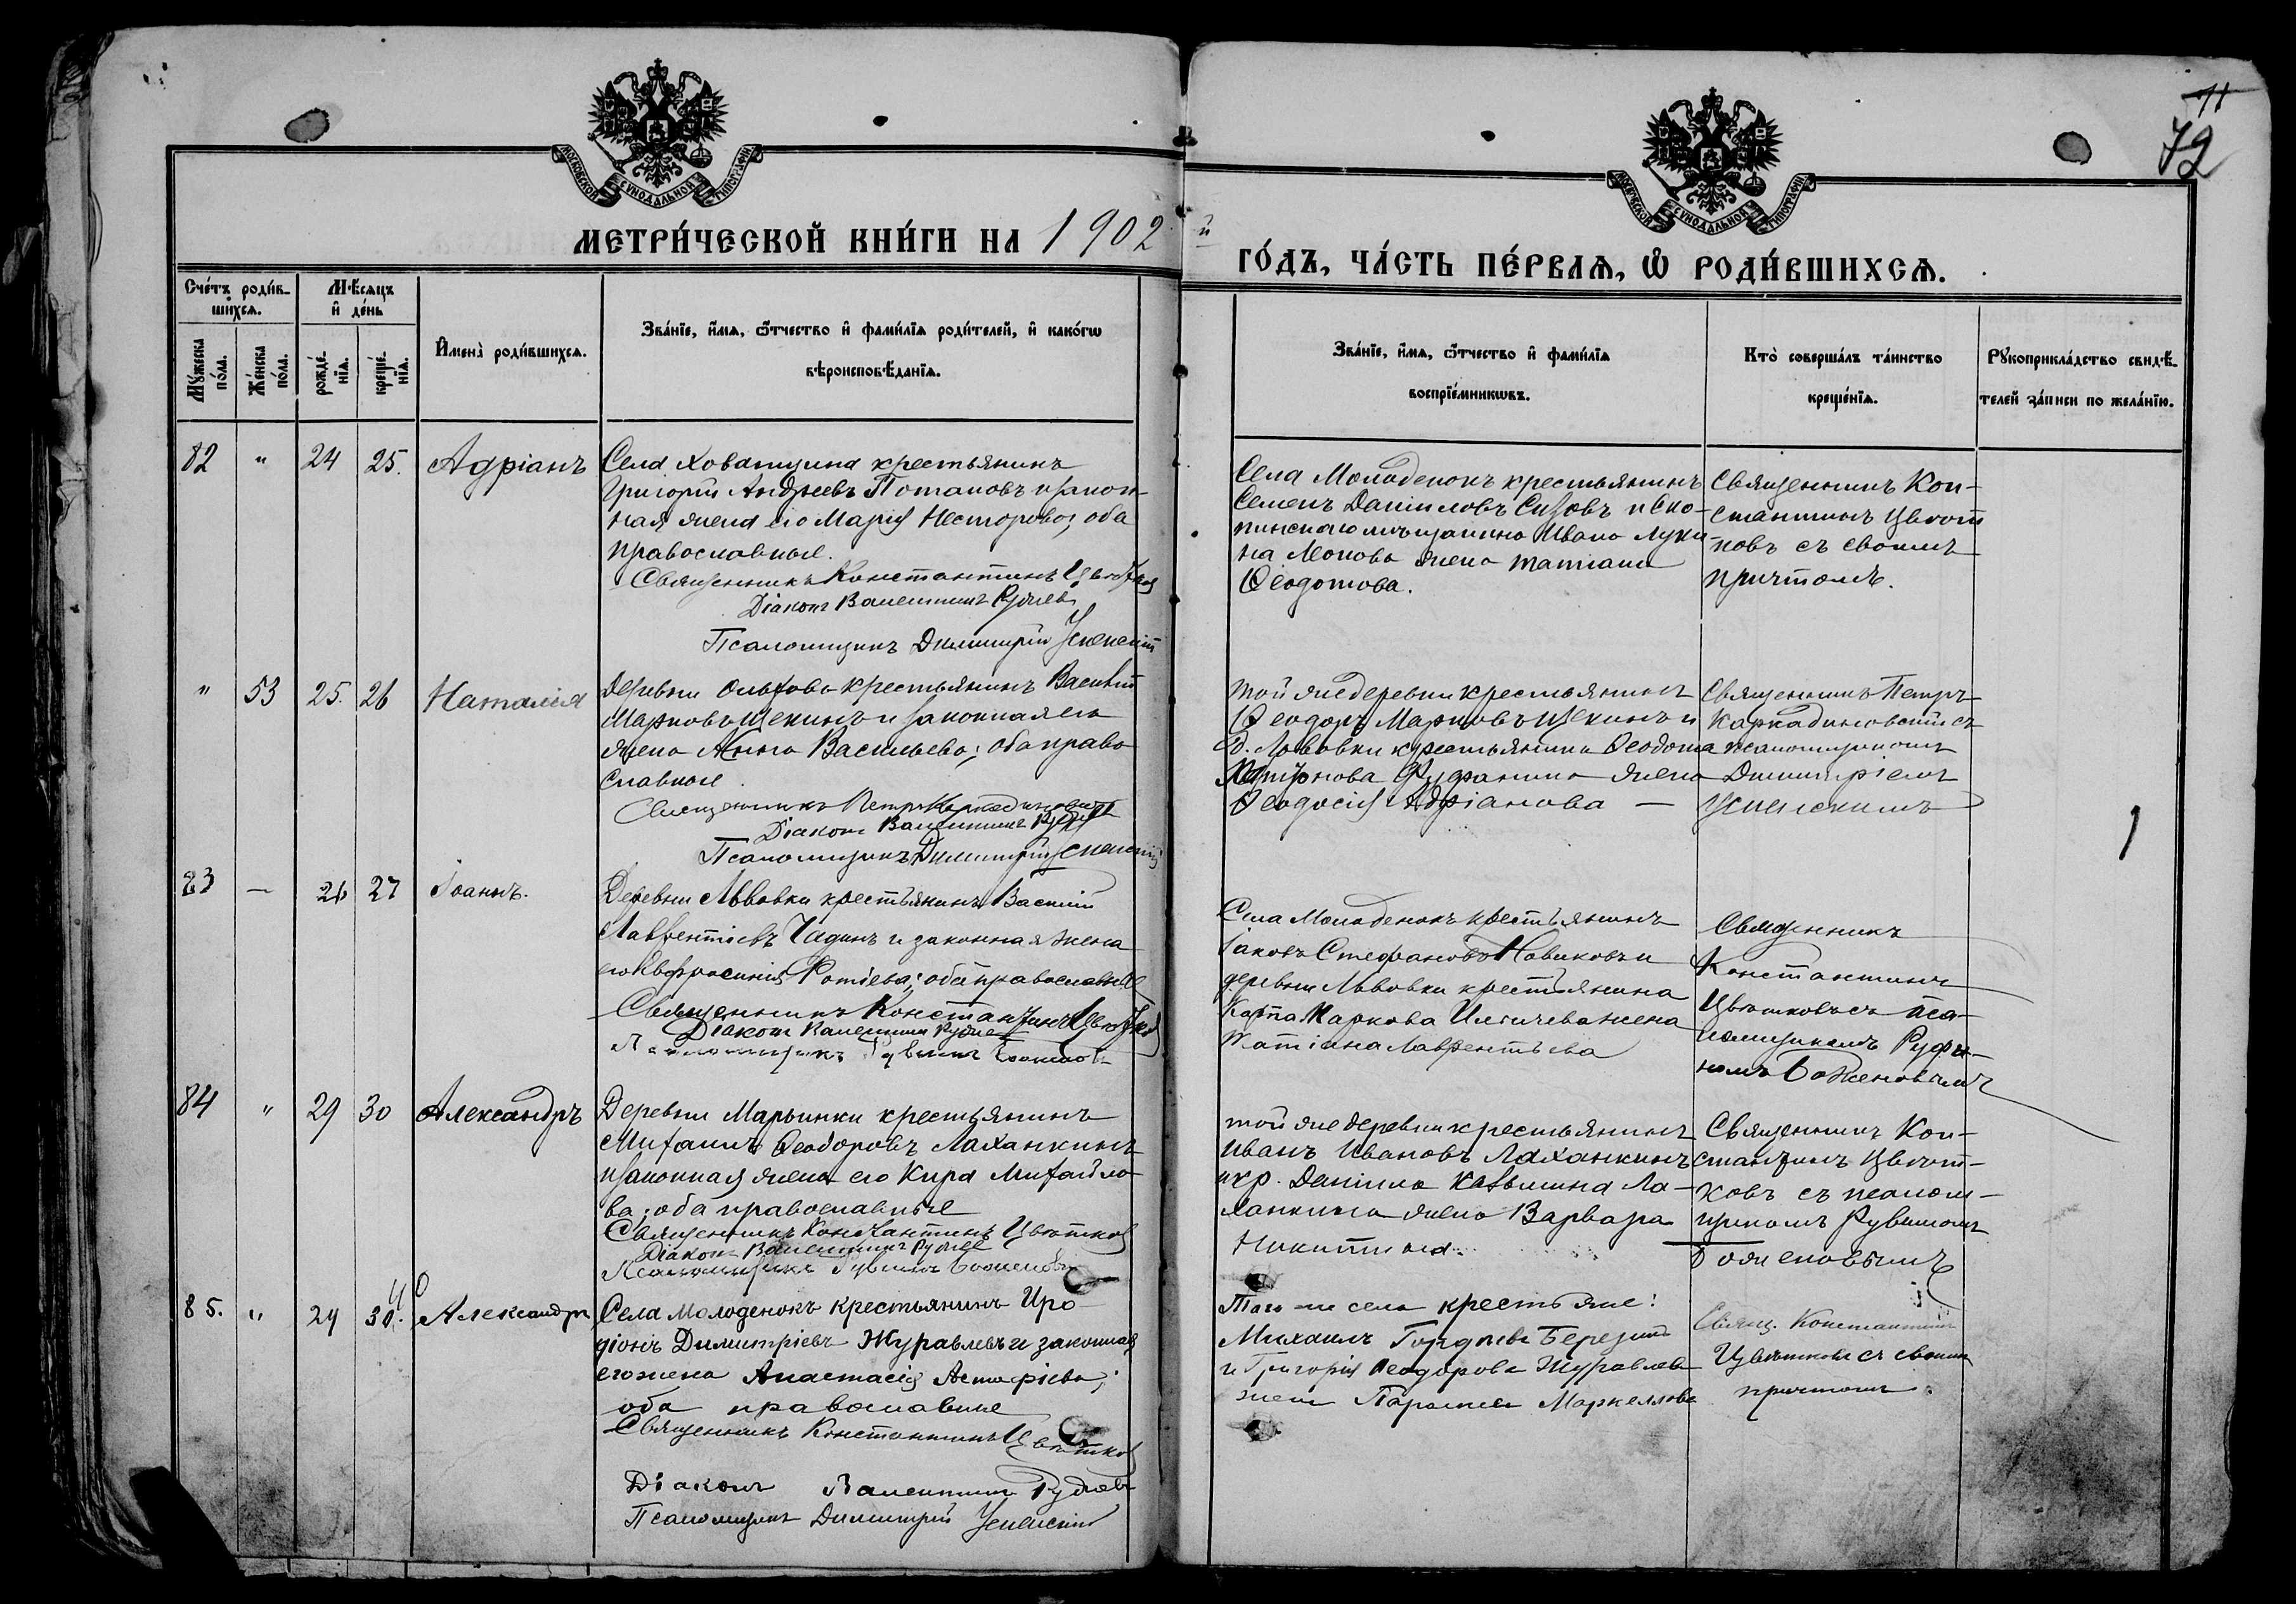 71
72
МОСКОВСКОЙ СѴНОДАЛЬНОЙ ТИПОГРАФІИ
МЕТРИ́ЧЕСКОЙ КНИ́ГИ НА 1902
МОСКОВСКОЙ СѴНОДАЛЬНОЙ ТИПОГРАФІИ
й ГО́ДЪ, ЧА́СТЬ ПЕ́РВАѦ, Ѡ҆ РОДИ́ВШИХСѦ.
Сче́тъ роди́в-
шихсѧ.
Мѣ́сѧцъ
и҆ де́нь
Мꙋ́жеска
по́ла.
Же́нска
по́ла.
рожде́-
нїѧ.
креще́-
нїѧ.
И҆мена̀ роди́вшихсѧ.
Зва́нїе, и҆́мѧ, ѻ҆́тчество и҆ фами́лїѧ роди́телей, и҆ како́гѡ
вѣроисповѣ́данїѧ.
Зва́нїе, и҆́мѧ, ѻ҆́тчество и҆ фами́лїѧ
воспрїе́мникѡвъ.
Кто̀ соверша́лъ та́инство
креще́нїѧ.
Рꙋкоприкла́дство свидѣ́-
телей за́писи по жела́нїю.
82 " 24 25. Адріанъ
Села Хованщина крестьянинъ
Григорій Андреевъ Потаповъ и закон-
ная жена его Марія Несторова; оба
православные.
Священникъ Константинъ Цвѣтковъ
Діаконъ Валентинъ Рудневъ
Псаломщикъ Димитрій Успенскій
Села Молоденокъ крестьянинъ
Семенъ Даниловъ Сизовъ и Ско-
пинскаго мѣщанина Ивана Луки-
на Попова жена Татіана
Ѳеодотова.
Священникъ Кон-
стантинъ Цвѣт-
ковъ съ своимъ
причтомъ.
" 53 25. 26 Наталія
Деревни Ольхова крестьянинъ Василій
Марковъ Щекинъ и законная его
жена Анна Васильева; оба право
славные.
Священникъ Петръ Каркадиновскій
Діаконъ Валентинъ Рудневъ
Псаломщикъ Димитрій Успенскій
той же деревни крестьянинъ
Ѳеодоръ Марковъ Щекинъ и
д. Львовки крестьянина Ѳеодота
жена
Ѳеодосія Адріанова —
Священникъ Петръ
Каркадиновскій съ
псаломщикомъ
Димитріемъ
Успенскимъ
1
83 — 26 27 Іоаннъ.
Деревни Львовки крестьянинъ Василій
Лаврентіевъ Чадинъ и законная жена
его Евфросинія Фотіева; оба православные
Священникъ Константинъ Цвѣтковъ
Діаконъ Валентинъ Рудневъ
Псаломщикъ Рувимъ Боженовъ
Села Молоденокъ крестьянинъ
Іаковъ Стефановъ Новиковъ и
деревни Львовки крестьянина
Карпа Маркова Иличева жена
Татіана Лаврентьева
Священникъ
Константинъ
Цвѣтковъ съ пса-
ломщикомъ
Боженовымъ
84 " 29 30 Александръ
Деревни Марьинки крестьянинъ
Михаилъ Ѳеодоровъ Лаханкинъ
и законная жена его Кира Михайло-
ва; оба православные
Священникъ Константинъ Цвѣтковъ
Діаконъ Валентинъ Рудневъ
Псаломщикъ Рувимъ Боженовъ
той же деревни крестьянинъ
Иванъ Ивановъ Лаханкинъ
и кр. Даніила Козьмина Ла-
ханкина жена Варвара
Никитина.
Священникъ Кон-
стантинъ Цвѣт-
ковъ съ псалом-
щикомъ Рувимомъ
Боженовымъ
85. " 29 30. Александръ
Села Молоденокъ крестьянинъ Иро-
діонъ Димитріевъ Журавлевъ и законная
его жена Анастасія Астафіева;
оба православные
Священникъ Константинъ Цвѣтковъ
Діаконъ Валентинъ Рудневъ
Псаломщикъ Димитрій Успенскій
Того же села крестьяне:
Михаилъ Гордѣевъ Березинъ
и Григорія Ѳеодорова Журавлева
жена Параскева Маркеллова
Свящ. Константинъ
Цвѣтковъ съ своимъ
причтомъ.